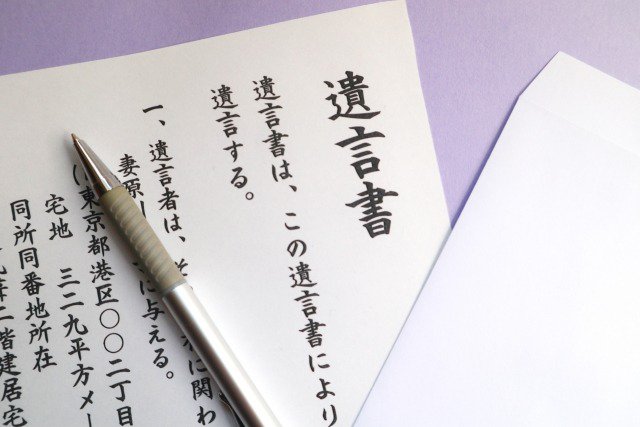 遺言書
遺言書は、この遺言書により
遺言する。
一、遺言者は、 に関わ
妻原 に与える。
東京都港区〇〇二丁目
宅地　三二九平方メー
同所同番地所在
葺二階建居宅